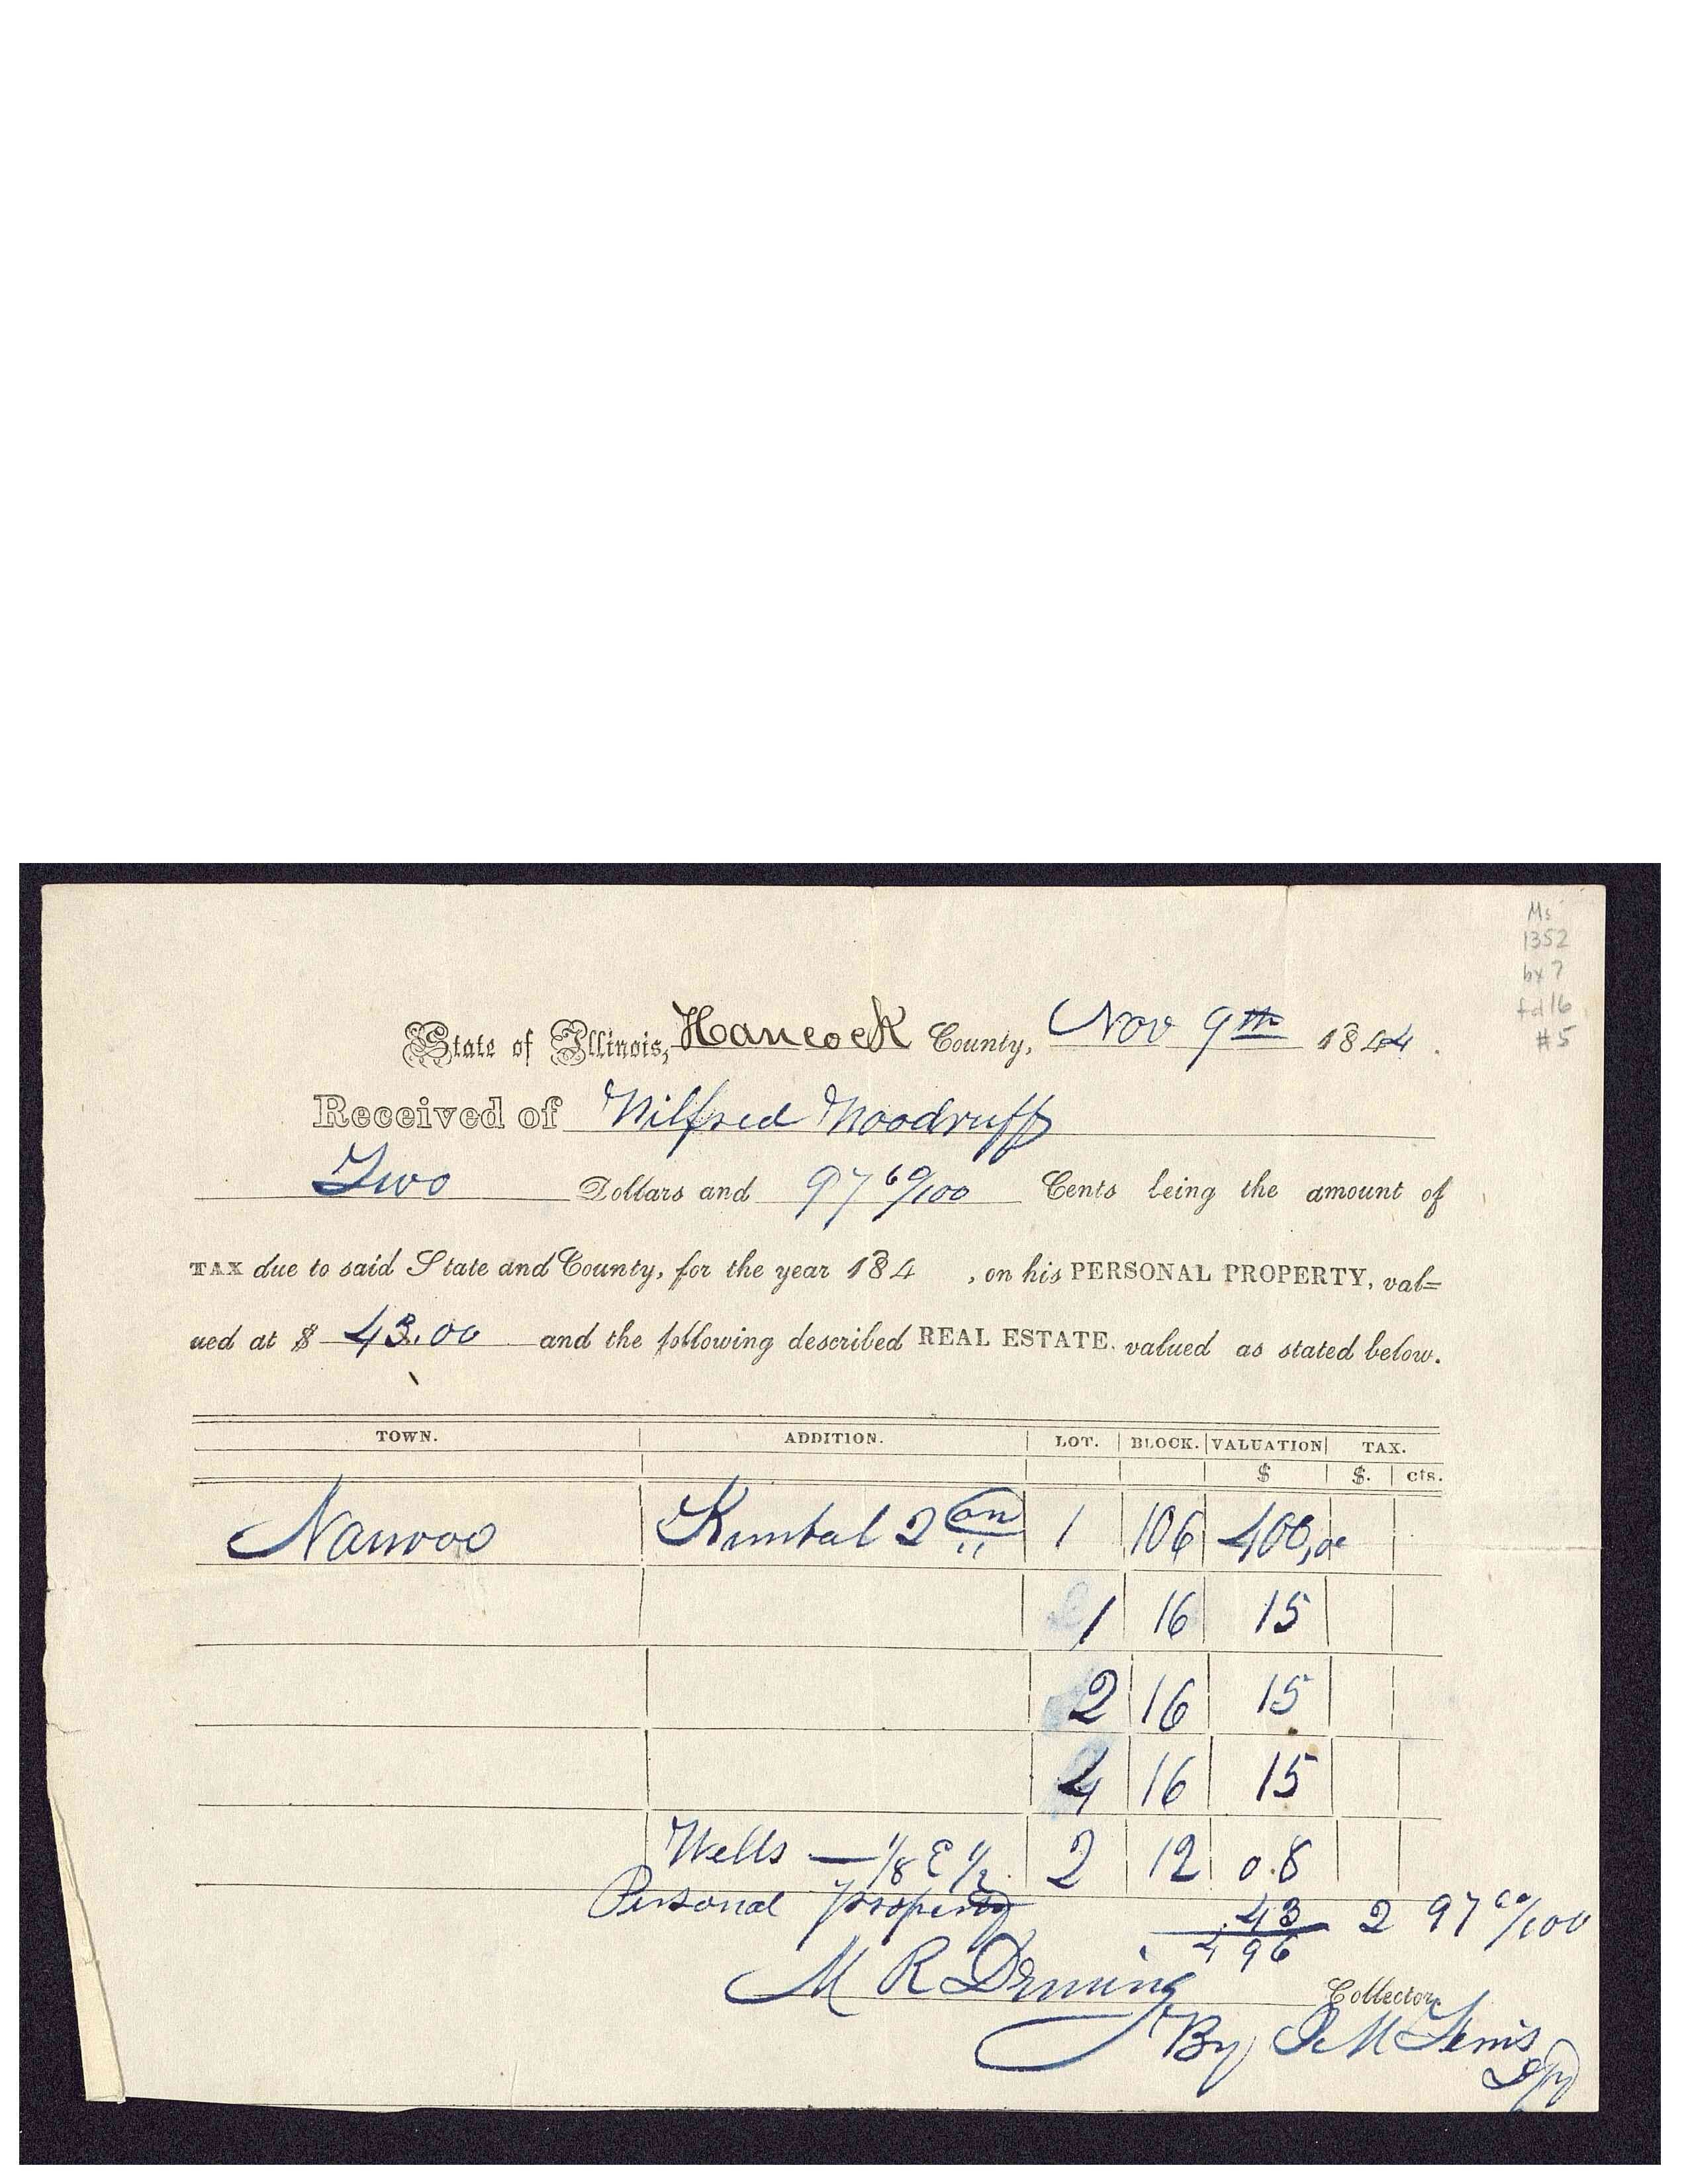 Ms
1352
bx 7
fd 16
#5
State of Illinois, Hancock County, Nov 9th 1844.
Received of Wilfred Woodruff
Two Dollars and 97 60/100 Cents being the amount of
TAX due to said State and County, for the year 184 , on his PERSONAL PROPERTY, val=
ued at $ 43.00 and the following described REAL ESTATE, valued as stated below.
TOWN. ADDITION. LOT. BLOCK. VALUATION TAX.
$ $. cts.
Nauvoo Kimbal 2 1 106 400,00
1 16 15
2 16 15
4 16 15
Wells — 1/8 E 1/2 2 12 0.8
Personal Property 43 2 97 60/100
496
M R Deming Collector
By